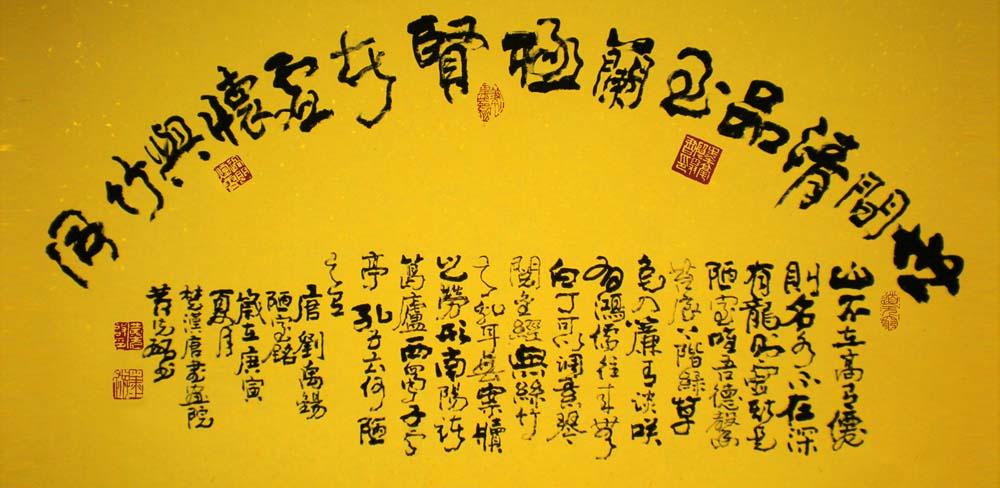 世間清品至蘭極賢者虛懷與竹同
山不在高有僊
則名水不在深
有龍則靈斯是
陋室唯吾德馨
苔痕上階綠草
色入簾青談咲
有鴻儒往來無
白丁可以調素琴
閱金經無絲竹
之亂耳無案牘
之勞形南陽諸
葛廬西蜀子雲
亭孔子云何陋
之有
唐劉禹錫
陋室銘
歲在庚寅
夏月
楚漢唐書畫院
書